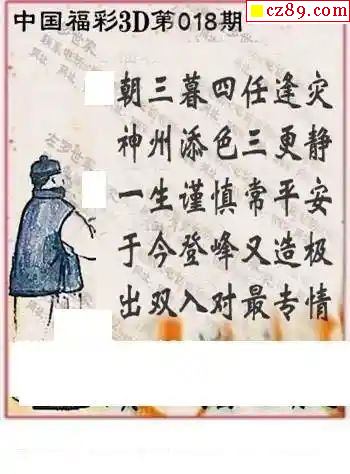 中国福彩3D第018期
cz89.com
朝三暮四任逢灾
神州添色三更静
一生谨慎常平安
于今登峰又造极
出双入对最专情